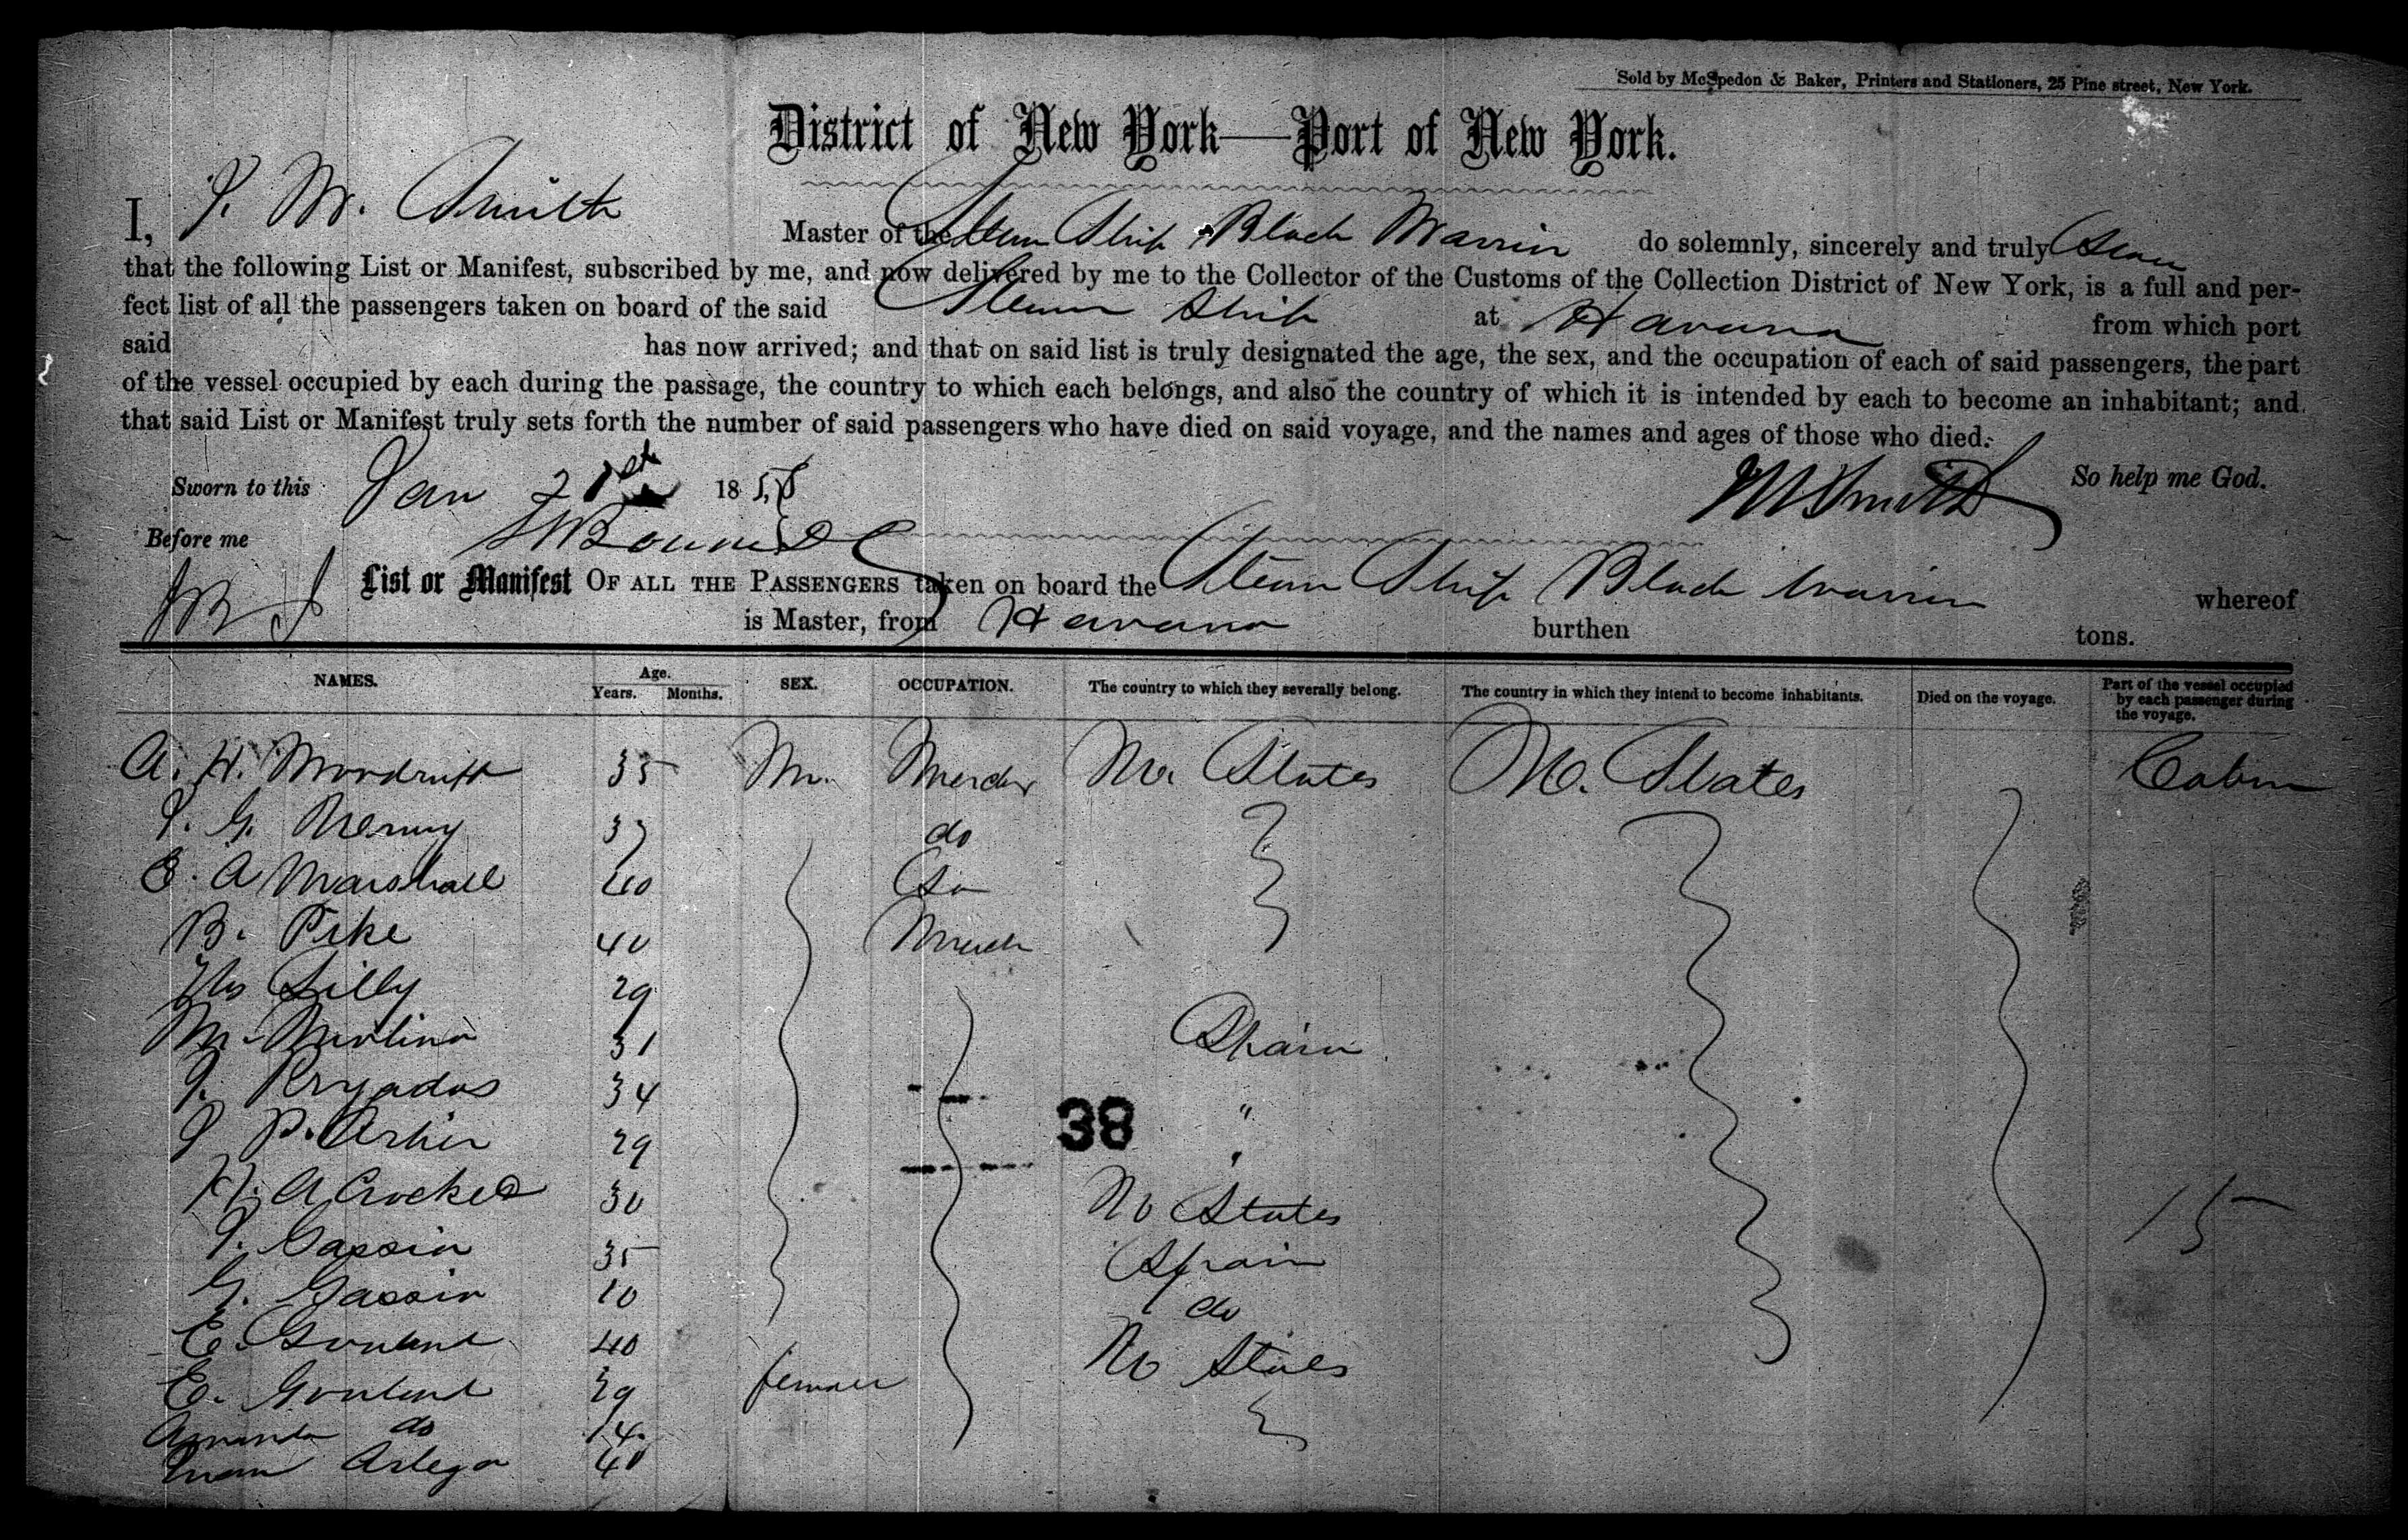 Sold by McSpedon & Baker, Printers and Stationers, 25 Pine street, New York.
District of New York—Port of New York.
I, J. W. Smith Master of the Steam Ship Black Warrior do solemnly, sincerely and truly Swear
that the following List or Manifest, subscribed by me, and now delivered by me to the Collector of the Customs of the Collection District of New York, is a full and per-
fect list of all the passengers taken on board of the said Steam Ship at Havana from which port
said has now arrived; and that on said list is truly designated the age, the sex, and the occupation of each of said passengers, the part
of the vessel occupied by each during the passage, the country to which each belongs, and also the country of which it is intended by each to become an inhabitant; and
that said List or Manifest truly sets forth the number of said passengers who have died on said voyage, and the names and ages of those who died.
Sworn to this Jan 21st 1858 Smith So help me God.
Before me
List or Manifest OF ALL THE PASSENGERS taken on board the Steam Ship Black Warrior whereof
is Master, from Havana burthen tons.
NAMES. Age. Years. Months. SEX. OCCUPATION. The country to which they severally belong. The country in which they intend to become inhabitants. Died on the voyage. Part of the vessel occupied by each passenger during the voyage.
A. H. Woodruff 35 M. Merchr States States Cabin
37 do
E. A Marshall 40 Do
B. Pike 40 Merch
Lilly 29
M. Molina 31 Spain
J. 34 "
J P. 29 "
H. A Crocker 30 States 15
J. Gassin 35 Spain
G. Gassin 10 do
E. 40 States
E. 39 female
Amanda do 14
Artega 40
38